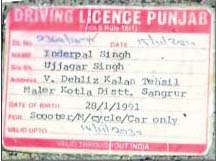 DRIVING LICENCE PUNJAB
DATE
Inderpal Singh
Ujjagar Singh
ADDRESS V. Dehliz Kalan Tehsil
Maler Kotla Distt. Sangrur
DATE OF BIRTH 28/1/1991
FOR Scooter/M/cycle/Car only
VALID UPTO
VALID THROUGHOUT INDIA